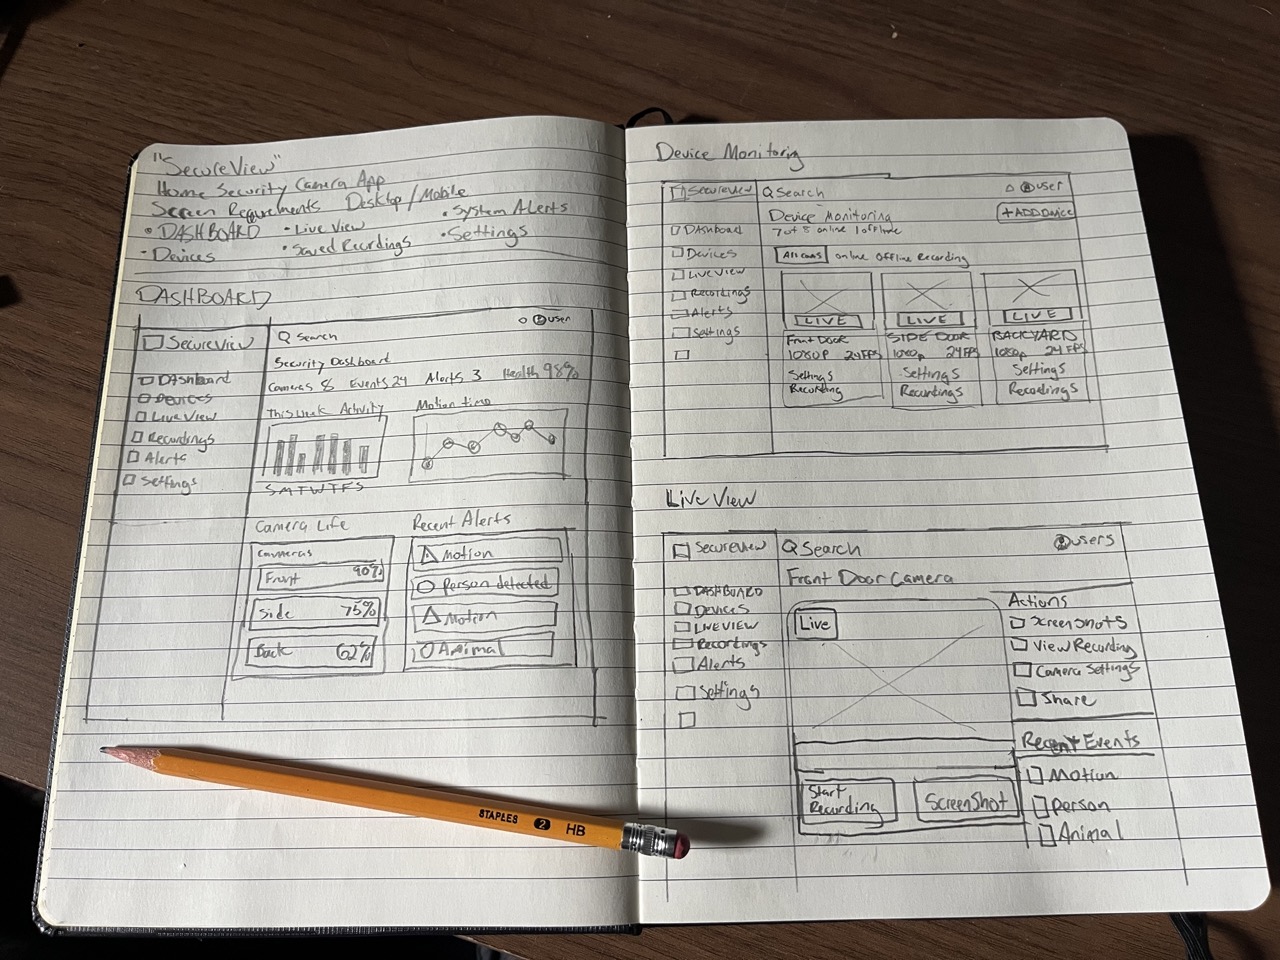 "SecureView"
Home Security Camera App
Screen Requirements Desktop/Mobile
• DASHBOARD • Live View • System Alerts
• Devices • Saved Recordings • Settings
DASHBOARD
SecureView
Dashboard
Devices
Live View
Recordings
Alerts
Settings
Search
user
Security Dashboard
Cameras 8 Events 24 Alerts 3 Health 98%
This week Activity
S M T W T F S
Motion time
Camera Life
Cameras
Front 90%
Side 75%
Back 62%
Recent Alerts
Motion
Person detected
Motion
Animal
STAPLES 2 HB
Device Monitoring
SecureView
Dashboard
Devices
Live View
Recordings
Alerts
Settings
Search
user
Device Monitoring
+ ADD Device
7 of 8 online 1 offline
All cams online Offline Recording
LIVE
Front Door
1080P 24FPS
Settings
Recording
LIVE
SIDE DOOR
1080p 24FPS
Settings
Recordings
LIVE
BACKYARD
1080p 24FPS
Settings
Recordings
Live View
SecureView
DASHBOARD
Devices
LIVEVIEW
Recordings
Alerts
Settings
Search
users
Front Door Camera
Live
Start
Recording
Screenshot
Actions
Screenshots
View Recording
Camera Settings
Share
Recent Events
Motion
person
Animal